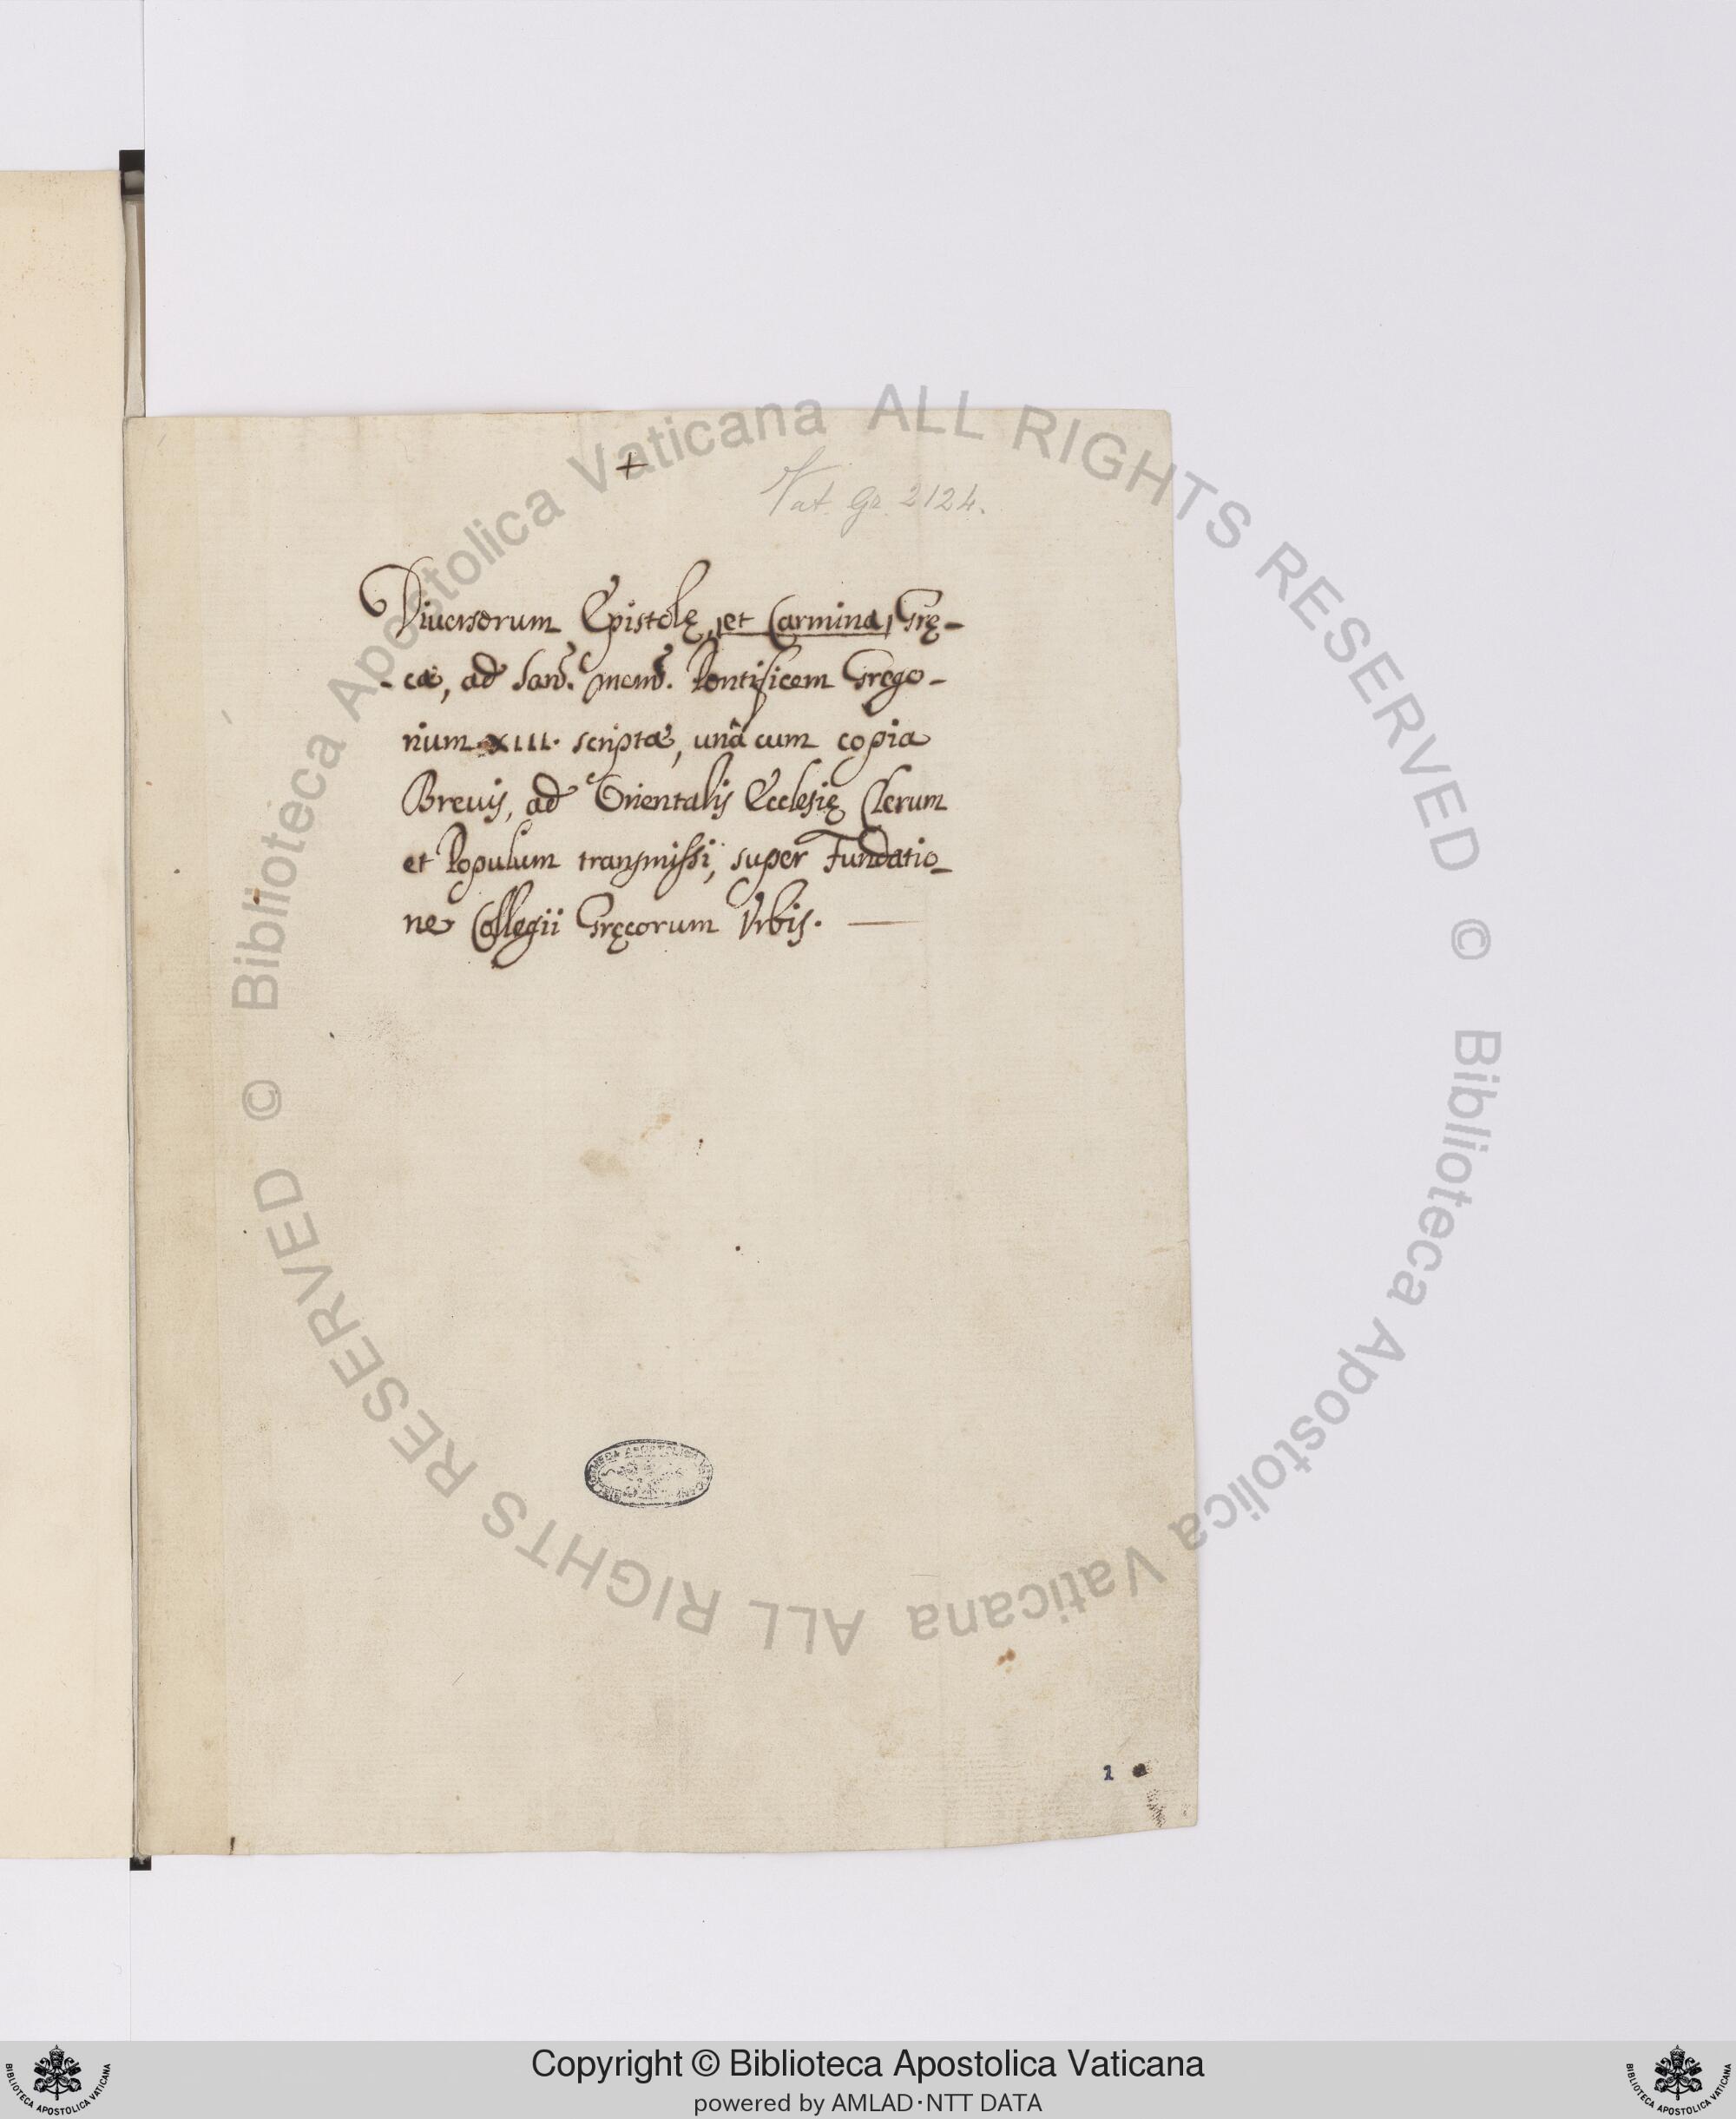 +
Vat. Gr. 2124.
Diuersorum Epistolę, et Carmina, Grę-
-cæ, ad San. mem. Pontificem Grego-
rium XIII. scriptæ, unâ cum copia
Breuis, ad Orientalis Ecclesię Clerum
et Populum transmissi, super Fundatio-
ne Collegii Gręcorum Vrbis.
1
© Biblioteca Apostolica Vaticana ALL RIGHTS RESERVED
© Biblioteca Apostolica Vaticana ALL RIGHTS RESERVED
BIBLIOTECA APOSTOLICA VATICANA
Copyright © Biblioteca Apostolica Vaticana
powered by AMLAD·NTT DATA
BIBLIOTECA APOSTOLICA VATICANA
BIBLIOTECA APOSTOLICA VATICANA